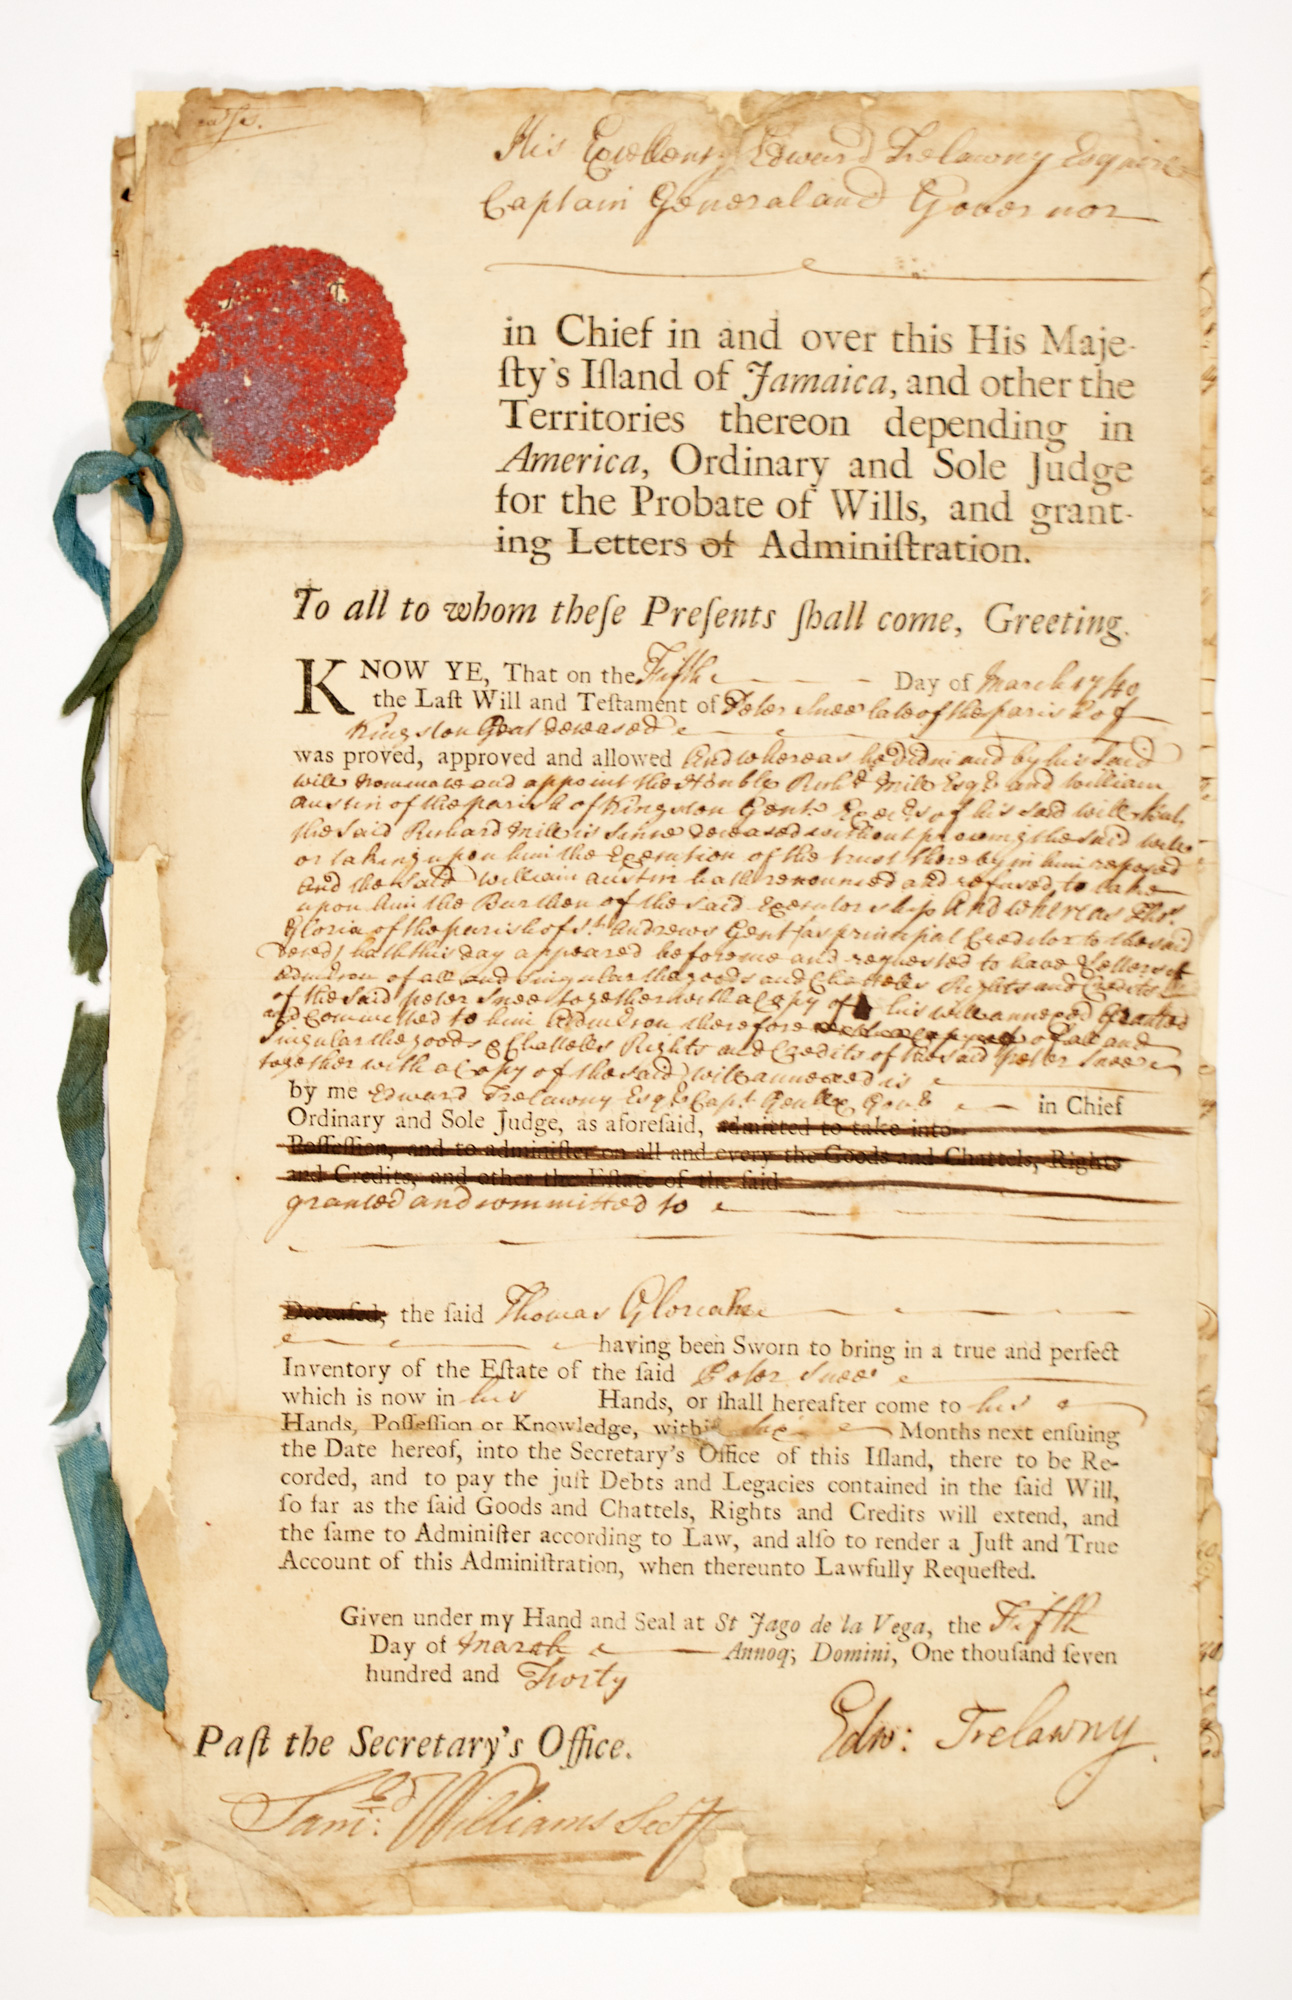 His Excellency Edward Trelawny Esquire
Captain General and Governor
in Chief in and over this His Maje-
ſty's Iſland of Jamaica, and other the
Territories thereon depending in
America, Ordinary and Sole Judge
for the Probate of Wills, and grant-
ing Letters of Adminiſtration.
To all to whom theſe Preſents ſhall come, Greeting.
KNOW YE, That on the Fifth Day of March 1740
the Laſt Will and Teſtament of Peter Snee late of the parish of
Kingston Gent deceased
was proved, approved and allowed And whereas he did in and by his Said
will nominate and appoint the Honble Richd Mill Esqr and William
Austin of the parish of Kingston Gent Exec.rs of his said will But
the said Richard Mill is since deceased without proving the said will
or taking upon him the Execution of the trust thereby in him reposed
And the said William Austin hath renounced and refused to take
upon him the Burthen of the said Executorship And whereas Thos
Gloria of the parish of St. Andrews Gent (as principal Creditor to the said
deced) hath this day appeared before me and requested to have Letters of
Admcron of all and singular the goods and Chattels Rights and Credits
of the said peter Snee together with a Copy of his will annexed Granted
and Committed to him Admcron therefore of all and
singular the goods & Chattels Rights and Credits of the said peter Snee
together with a Copy of the said will annexed is
by me Edward Trelawny Esqr Capt Genll & Govr in Chief
Ordinary and Sole Judge, as aforeſaid, admitted to take into
Poſſeſſion, and to adminiſter on all and every the Goods and Chattels, Rights
and Credits, and other the Eſtate of the ſaid
granted and committed to
Deceaſed, the ſaid Thomas Gloria he
having been Sworn to bring in a true and perfect
Inventory of the Eſtate of the ſaid Peter Snee
which is now in his Hands, or ſhall hereafter come to his
Hands, Poſſeſſion or Knowledge, within Six Months next enſuing
the Date hereof, into the Secretary's Office of this Iſland, there to be Re-
corded, and to pay the juſt Debts and Legacies contained in the ſaid Will,
ſo far as the ſaid Goods and Chattels, Rights and Credits will extend, and
the ſame to Adminiſter according to Law, and alſo to render a Juſt and True
Account of this Adminiſtration, when thereunto Lawfully Requeſted.
Given under my Hand and Seal at St Jago de la Vega, the Fifth
Day of March Annoq; Domini, One thouſand ſeven
hundred and Forty
Edw: Trelawny
Paſt the Secretary's Office.
Sam: Williams Secry